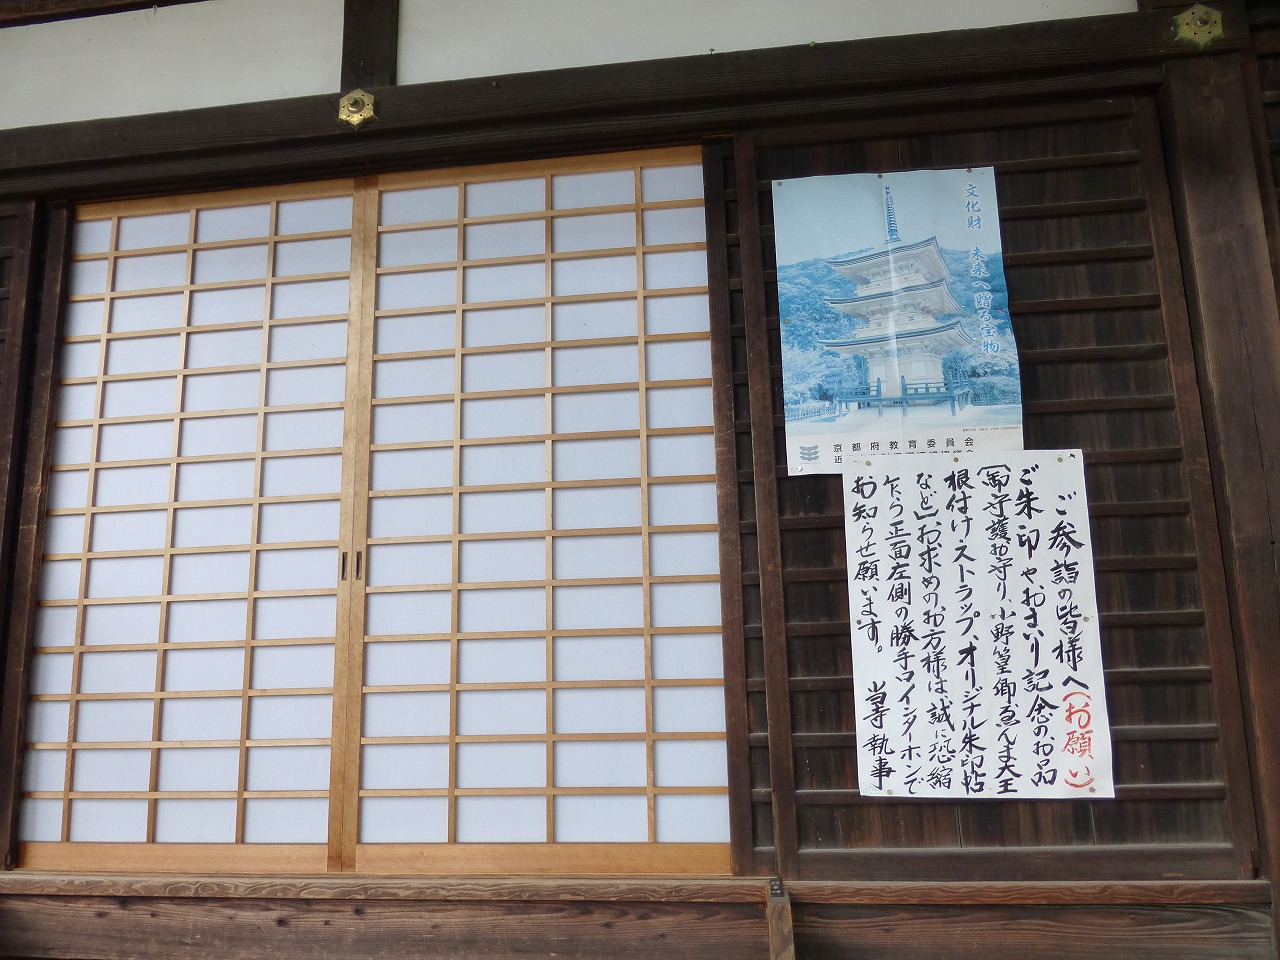 文化財 未来へ贈る宝物
京都府教育委員会
ご参詣の皆様へ(お願い)
ご朱印や、おまいり記念のお品
(御守護お守り、小野篁卿、ゑんま大王
根付け・ストラップ、オリジナル朱印帖
など)お求めのお方様は、誠に恐縮
乍ら正面左側の勝手口インターホンで
お知らせ願います。
当寺執事